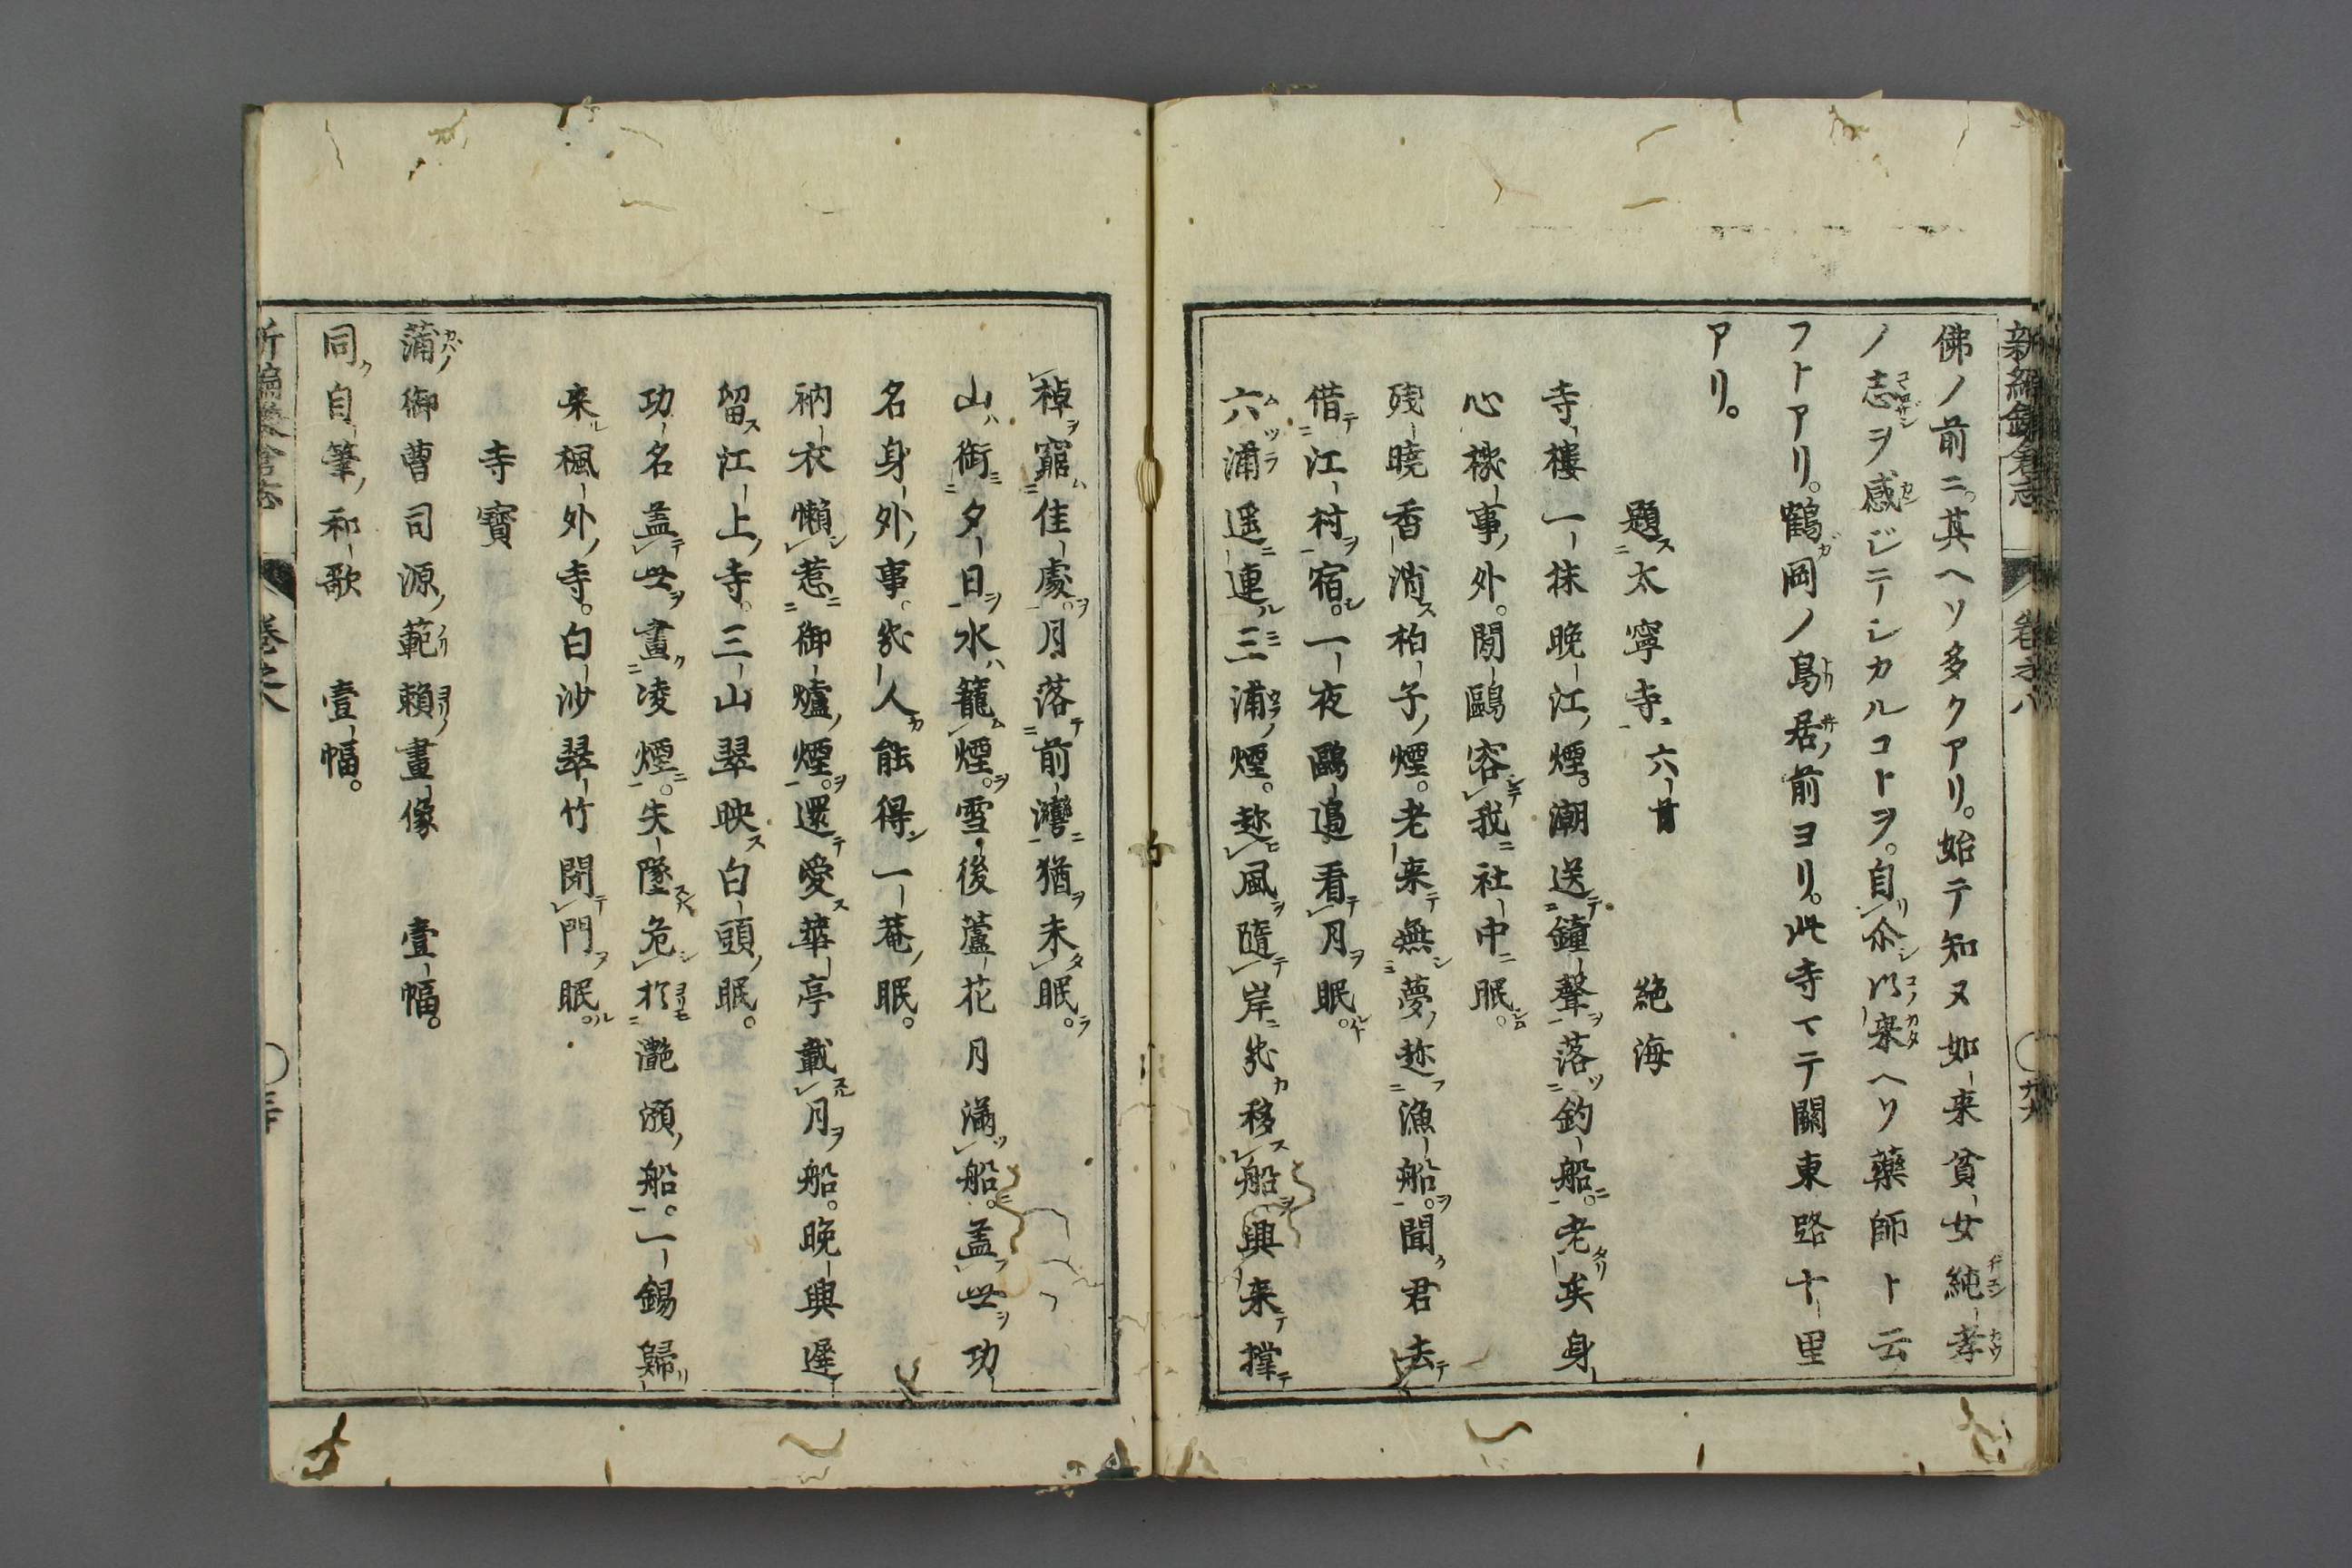 新編鎌倉志 卷之八
佛ノ前ニ。其ヘソ多クアリ。始テ知ヌ如来貧女純孝
ノ志ヲ感ジテシカルコトヲ。自尒以来ヘソ藥師ト云
フトアリ。鶴岡ノ鳥居ノ前ヨリ。此寺マテ關東路十里
アリ。
題太寧寺 六首 絶海
寺樓一抹晩江煙。潮送鐘聲落釣船。老矣身
心機事外。閒鷗容我社中眠。
殘曉香消柏子煙。老来無夢趁漁船。聞君去
借江村宿。一夜鷗邉看月眠。
六浦遥連三浦煙。趁風隨岸幾移船。興来撑
棹窮佳處。月落前灣猶未眠。
山銜夕日水籠煙。雪後蘆花月滿船。盖世功
名身外事。幾人能得一菴眠。
衲衣懶惹御爐煙。還愛華亭載月船。晩興遲
留江上寺。三山翠映白頭眠。
功名盖世畫凌煙。失墜危於灔澦船。一錫歸
来楓外寺。白沙翠竹閉門眠。
寺寳
蒲御曹司源範賴畫像 壹幅。
同自筆和歌 壹幅。
新編鎌倉志 卷之八 三十